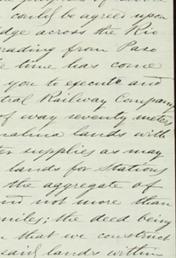 could be agreed upon
across the Rio
grading from Paso
time has come
you to execute and
Railway Company
of way seventy meters
lands with
supplies as may
lands for Stations
the aggregate of
in not more than
miles; the deed being
that we construct
said lands within